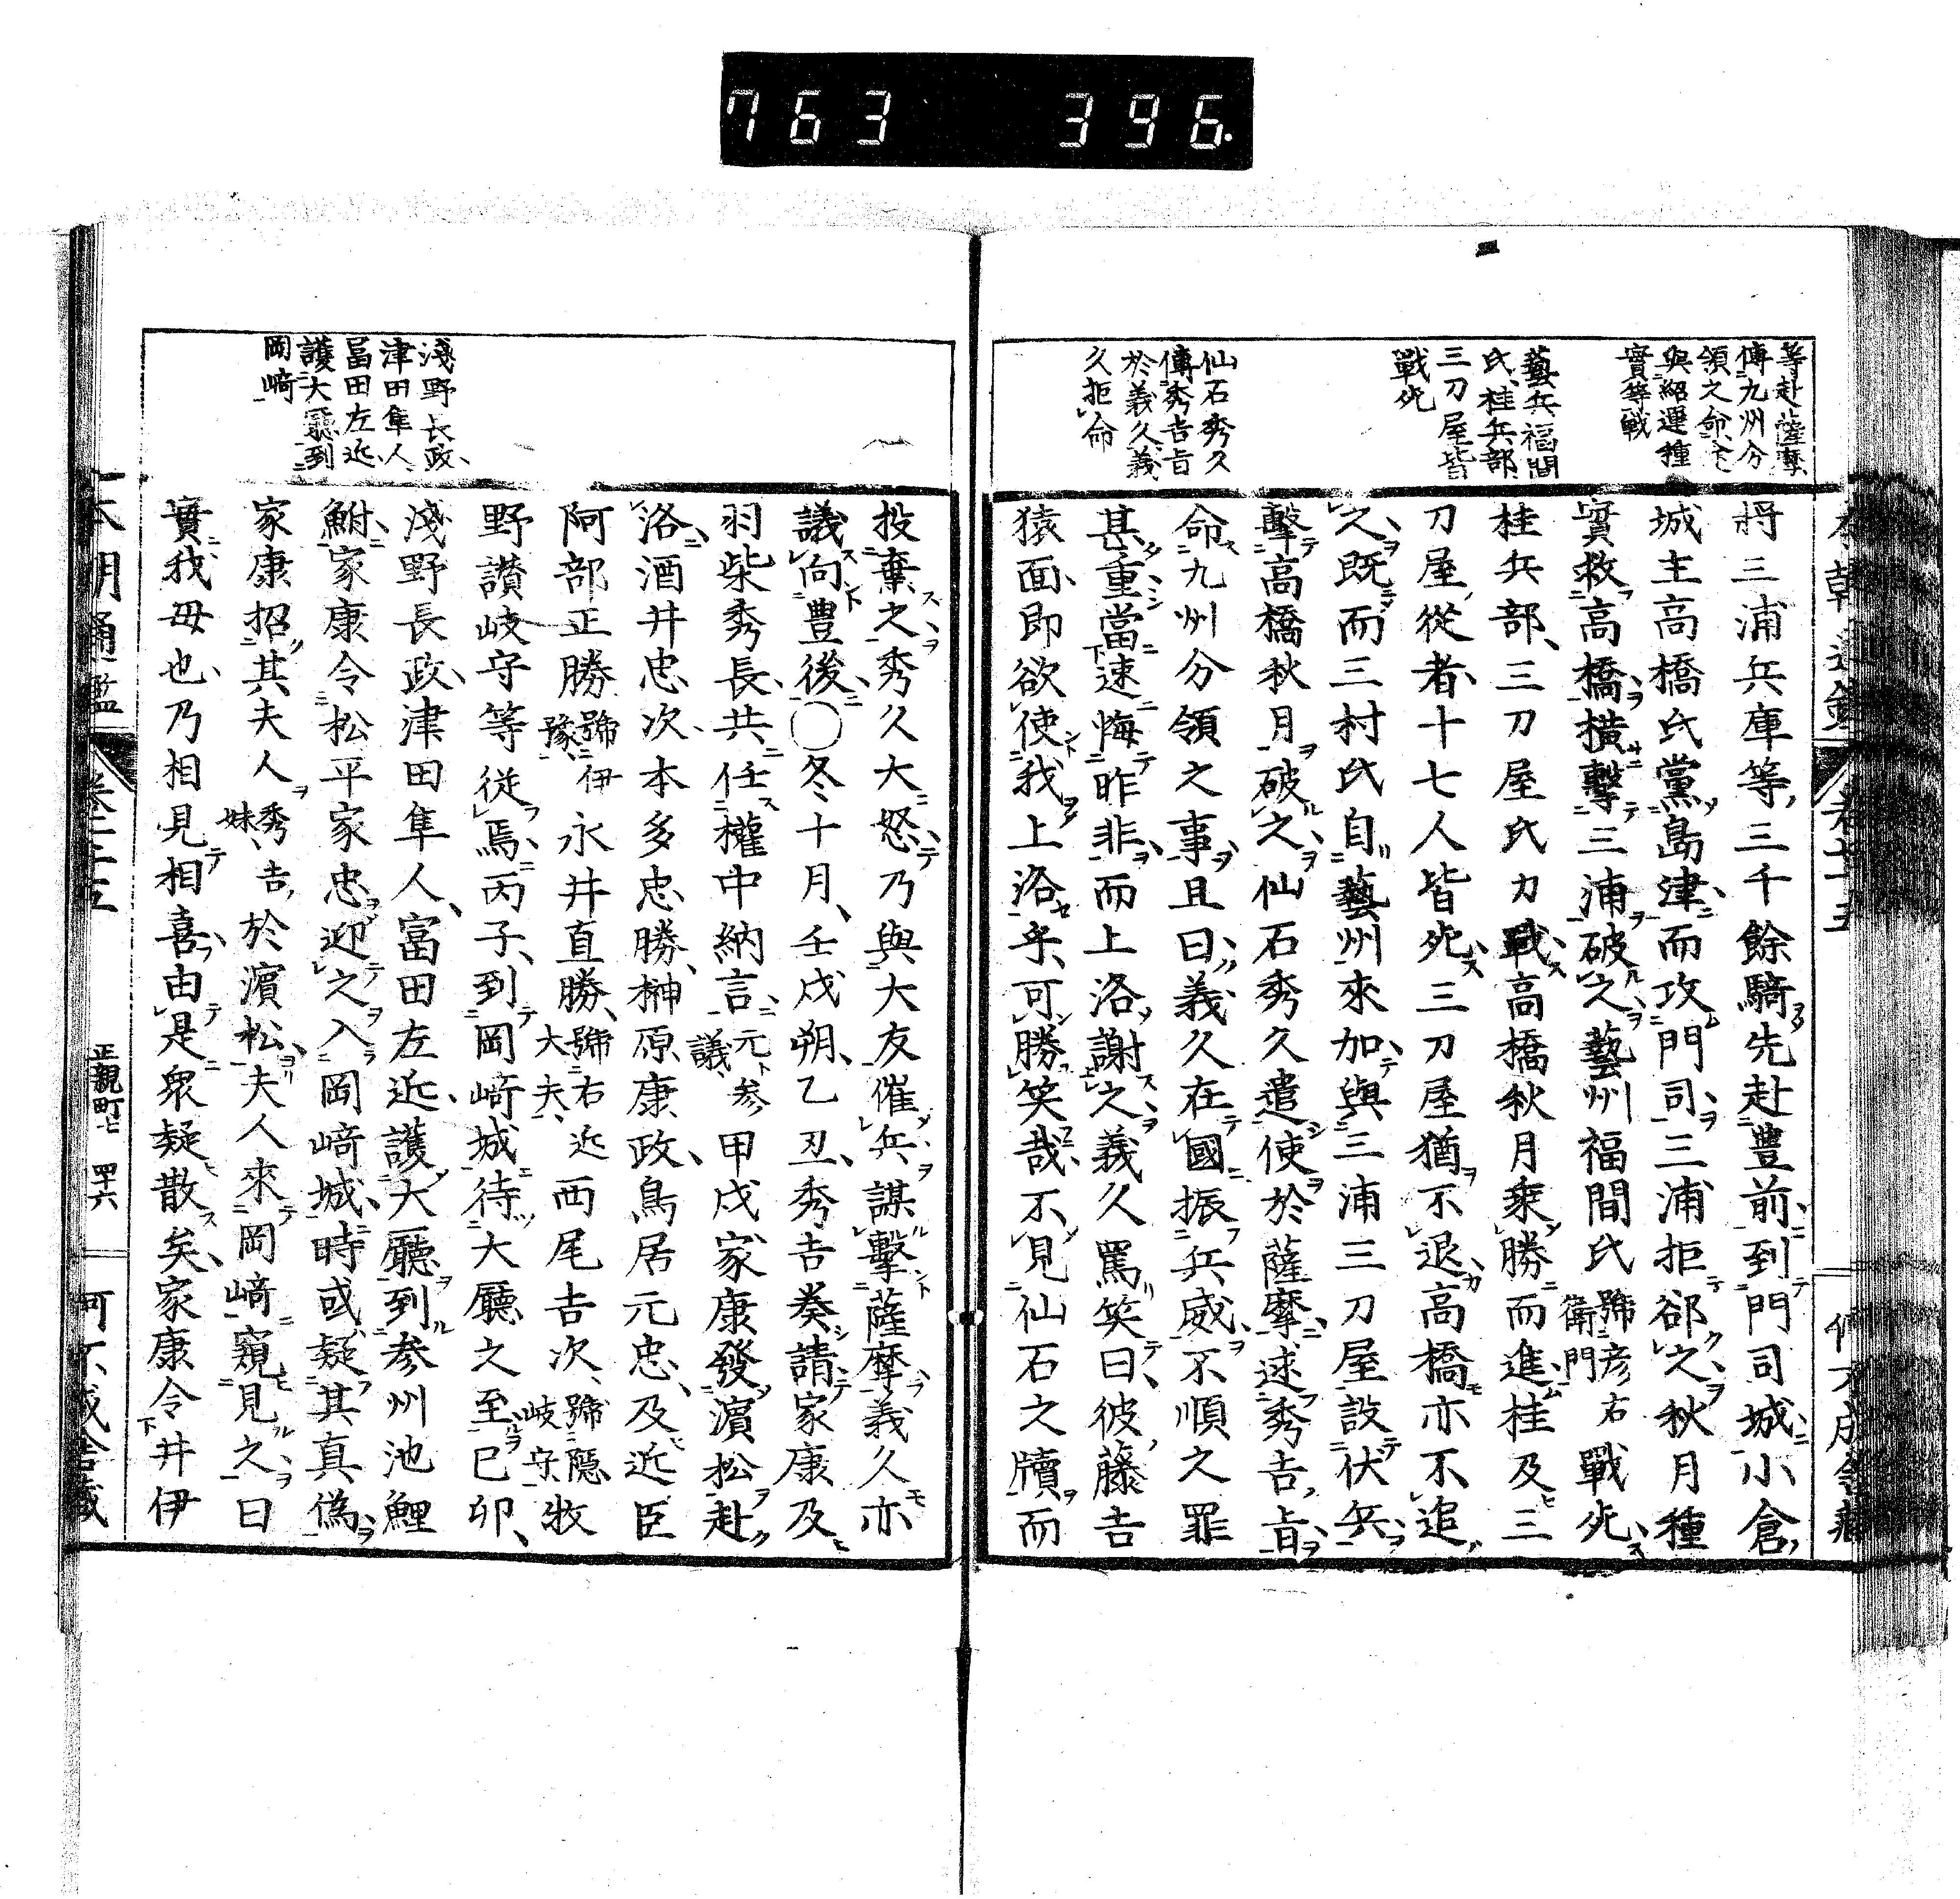 763 396
等赴薩摩
傳九州分
領之命
與紹運種
實等戰
藝兵福間
氏桂兵部
三刀屋皆
戰死
仙石秀久
傳秀吉旨
於義久義
久拒命
將三浦兵庫等三千餘騎先赴豊前到門司城小倉
城主高橋氏黨島津而攻門司三浦拒郤之秋月種
實救高橋橫擊三浦破之藝州福間氏號彥右衛門戰死
桂兵部三刀屋氏力戰高橋秋月乘勝而進桂及三
刀屋從者十七人皆死三刀屋猶不退高橋亦不追
久既而三村氏自藝州來加與三浦三刀屋設伏兵
擊高橋秋月破之仙石秀久遣使於薩摩逑秀吉旨
命九州分領之事且曰義久在國振兵威不順之罪
甚重當速悔昨非而上洛謝之義久罵笑曰彼藤吉
猿面即欲使我上洛乎可勝笑哉不見仙石之牘而
淺野長政
津田隼人
冨田左近
護大廳到
岡崎
投棄之秀久大怒乃與大友催兵謀擊薩摩義久亦
議向豊後〇冬十月壬戌朔乙丑秀吉奏請家康及
羽柴秀長共任權中納言元參議甲戌家康發濵松赴
洛酒井忠次本多忠勝榊原康政鳥居元忠及近臣
阿部正勝號伊豫永井直勝號右近大夫西尾吉次號隱岐守牧
野讃岐守等從焉丙子到岡崎城待大廳之至巳卯
淺野長政津田隼人富田左近護大廳到參州池鯉
鮒家康令松平家忠迎之入岡崎城時或疑其真僞
家康招其夫人秀吉妹於濵松夫人來岡崎窺見之曰
實我母也乃相見相喜由是衆疑散矣家康令井伊
正親町七
四十六